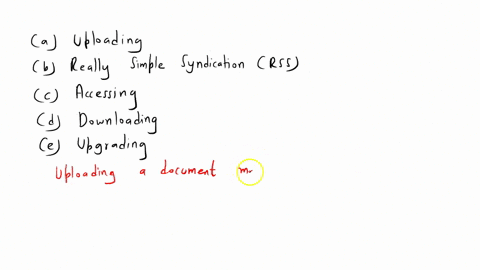 (a) Uploading
(b) Really Simple Syndication (RSS)
(c) Accessing
(d) Downloading
(e) Upgrading
Uploading a document